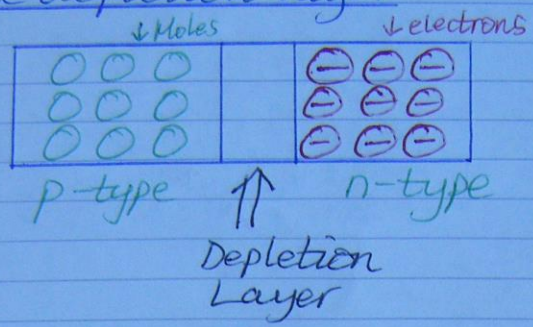 ↓Holes
↓electrons
p-type
n-type
Depletion
Layer